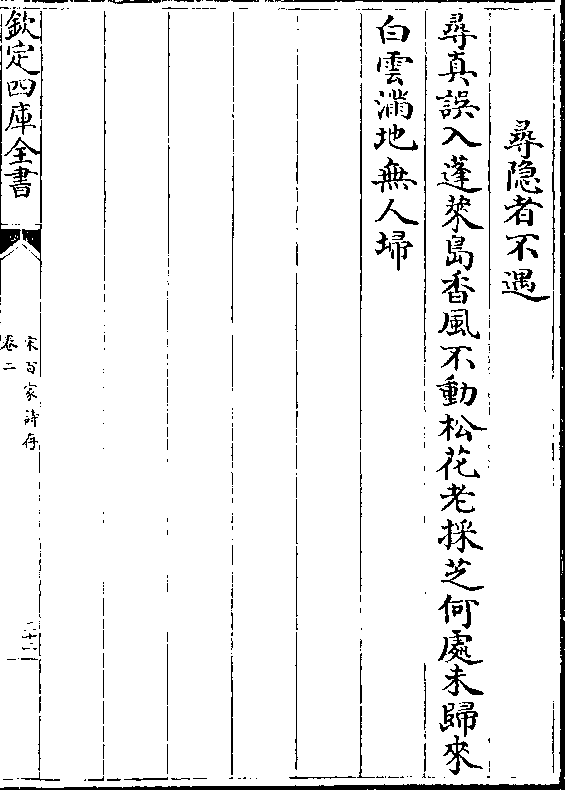 尋隐者不遇
尋真誤入蓬萊島香風不動松花老採芝何處未歸來
白雲滿地無人埽
欽定四庫全書
宋百家詩存
卷二
二十二